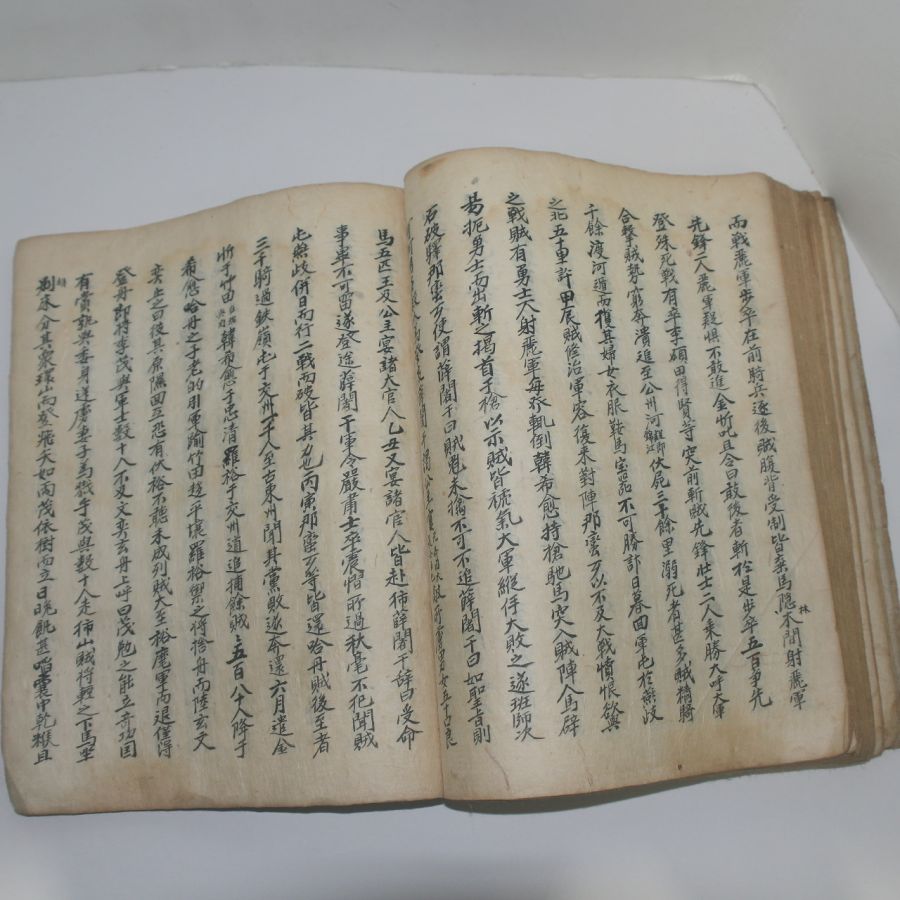 而戰麗軍步卒在前騎兵逐後賊腹背受制皆棄馬隱林木間射麗軍
先鋒二人麗軍疑惧不敢進金忻叱且令曰敢後者斬於是步卒五百爭先
登殊死戰有卒李碩田得賢等突前斬賊先鋒壯士二人乘勝大呼大軍
合擊賊勢窮奔潰追至公州河伏屍三十餘里溺死者甚多賊精騎
千餘渡河遁而獲其婦女衣服鞍馬宝器不可勝計日暮回軍屯於燕歧
之北五十里許甲辰賊修治軍容復来對陣那蛮歹以不及大戰憤恨欲與
之戰賊有勇士一人射麗軍每發輒倒韓希愈持槍馳馬突入賊陣人馬辟
易扼勇士而出斬之揭首于槍以示賊皆褫氣大軍縱仟大敗之遂班師次
石破驛那蛮歹使謂薛闍干曰賊魁未擒不可不追薛闍干曰如聖旨則
馬五匹王及公主宴諸大官人乙丑又宴諸官人皆赴薛闍干辞曰受命
事畢不可留遂登途薛闍干軍令嚴肅士卒震慴所過秋毫不犯聞賊
屯燕歧併日而行二戰而破皆其力也丙寅那蛮歹等皆還哈丹賊後至者
三千騎過鉄嶺屯于交州一千人至古東州聞其黨敗遂奔還六月遣金
忻于竹田韓希愈于忠清羅裕于交州道追捕餘賊賊五百八十人降于
希愈哈丹之子老的引軍踰竹田趍平壤羅裕禦之將捨舟而陸玄文
奕止之曰彼其原隰回互恐有伏裕不聽未成列賊大至裕麾軍而退僅得
登舟即將李茂與軍士數十人不及文奕在舟上呼曰茂勉之能立奇功国
有賞孰與委身逆虜妻子為戮乎茂與數十人走山賊將輕之下馬坐
胡床分其衆環山而登飛矢如雨茂依樹而立日晩飢甚啗囊中乾糇且